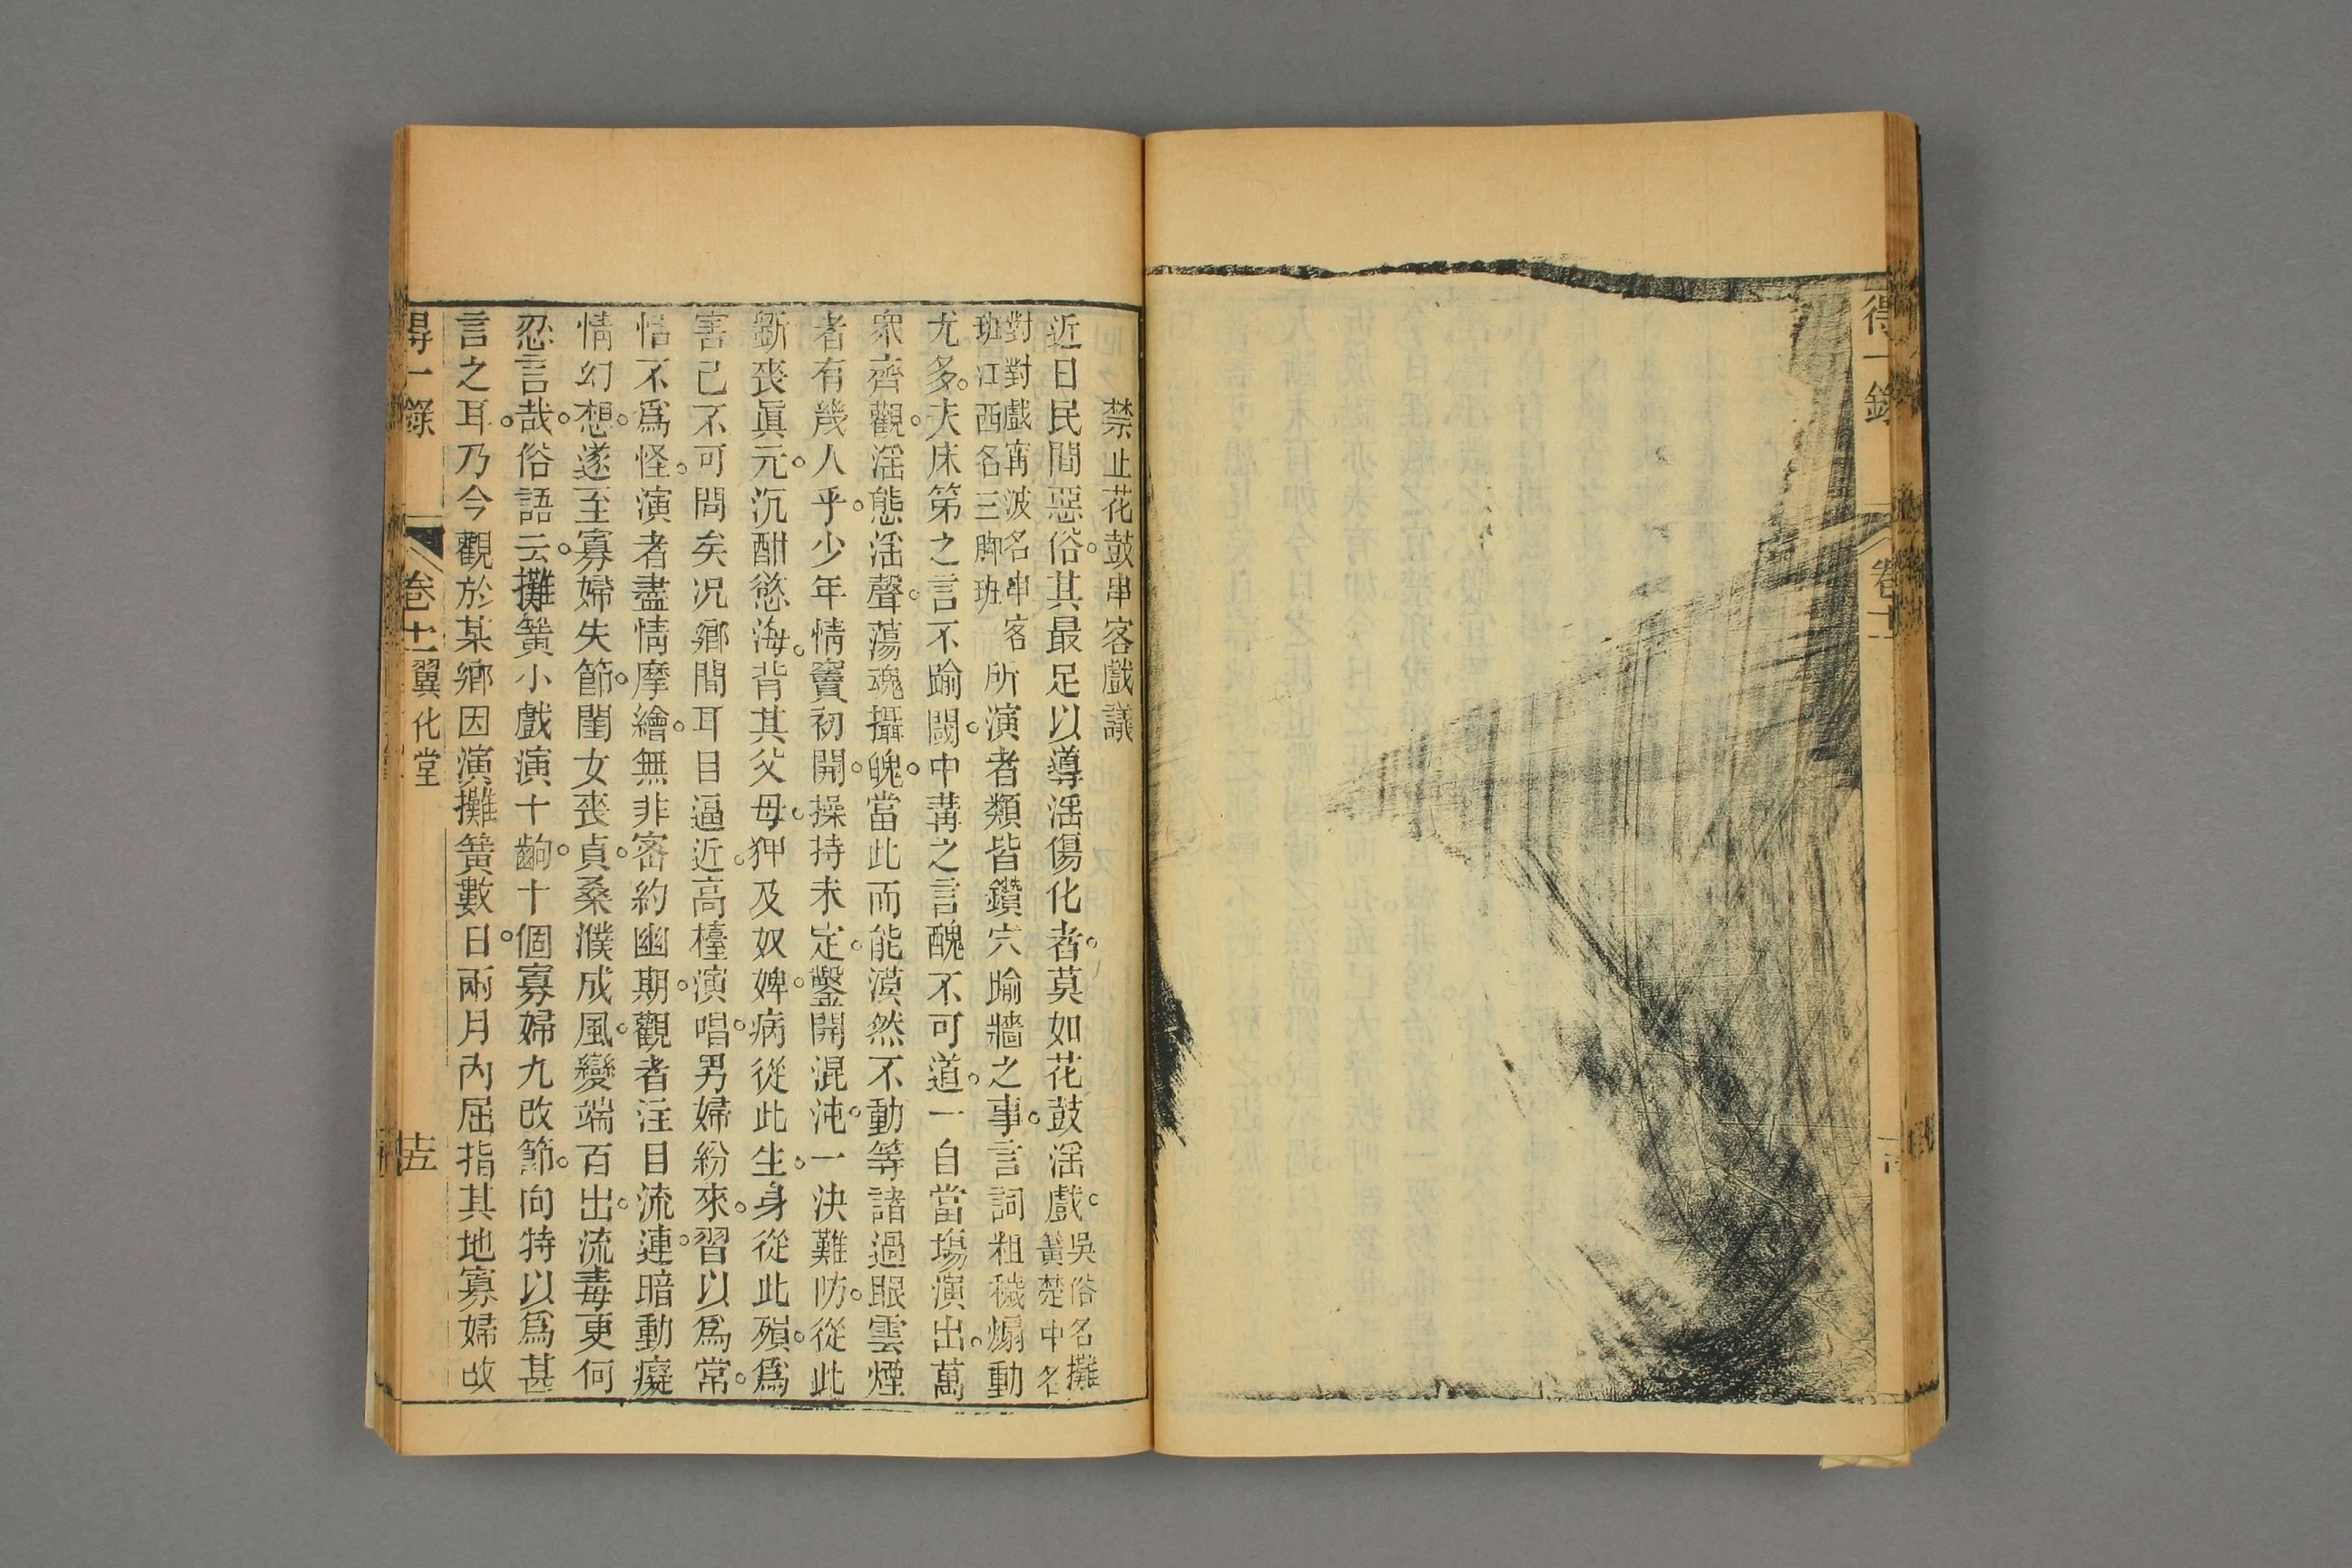 得一錄
卷十一
禁止花鼓串客戲議
近日民間惡俗。其最足以導淫傷化者。莫如花鼓淫戲。吳俗名攤
簧楚中名
對對戲甯波名串客
班江西名三脚班
所演者類皆鑽穴踰牆之事。言詞粗穢煽動
尤多。夫床笫之言不踰閾。中冓之言醜不可道。一自當場演出。萬
衆齊觀。淫態淫聲。蕩魂攝魄。當此而能漠然不動等諸過眼雲煙
者有幾人乎。少年情竇初開。操持未定。鑿開混沌。一決難防。從此
斲喪眞元。沉酣慾海。背其父母。狎及奴婢。病從此生。身從此殞。爲
害已不可問矣况鄉間耳目逼近。高檯演唱。男婦紛來。習以爲常。
恬不爲怪。演者盡情摩繪。無非密約幽期。觀者注目流連。暗動癡
情幻想。遂至寡婦失節。閨女喪貞。桑濮成風。變端百出。流毒更何
忍言哉。俗語云。攤簧小戲演十齣。十個寡婦九改節。向特以爲甚
言之耳。乃今觀於某鄉因演攤簧數日。兩月內屈指其地寡婦改
得一錄
卷十一
翼化堂
十五